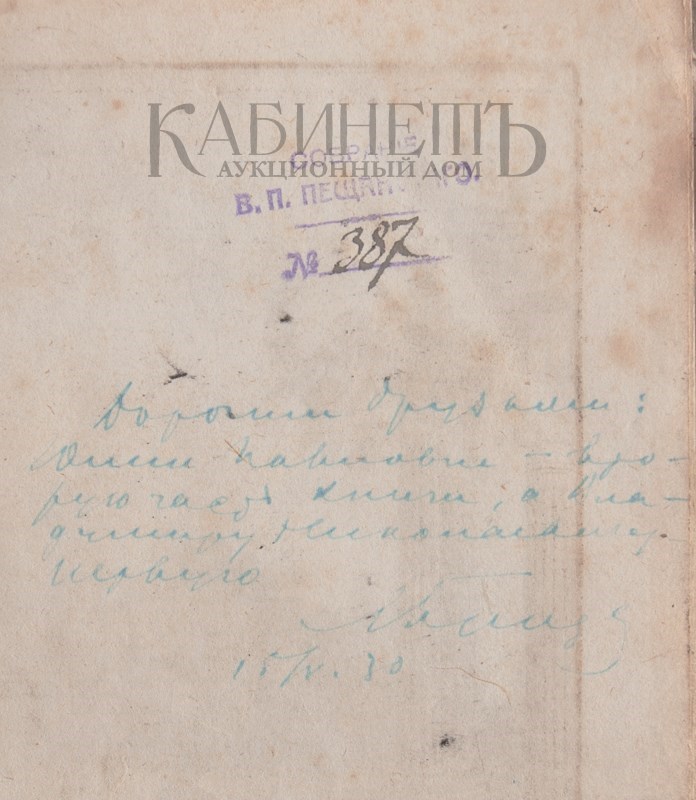 КАБИНЕТЪ
АУКЦИОННЫЙ ДОМ
СОБРАНИЕ
В. П. ПЕЩАНСКАГО.
№ 387
Дорогим друзьям:
Павловне – вто-
рую часть книги, а Вла-
димиру Николаевичу
первую
15/V.30